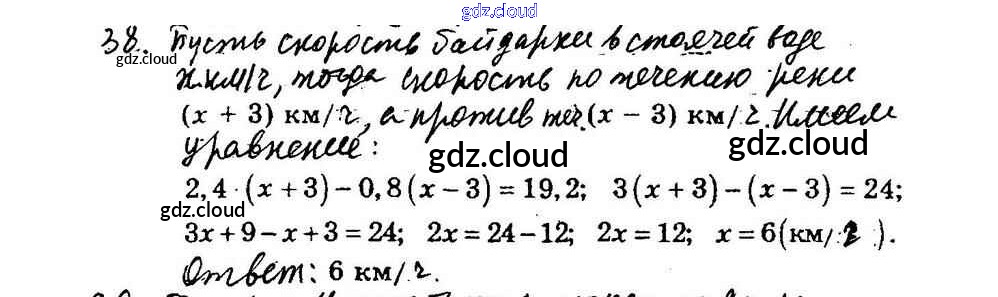 gdz.cloud
38. Пусть скорость байдарки в стоячей воде
gdz.cloud
x км/ч, тогда скорость по течению реки
(x + 3) км/ч, а против теч. (x − 3) км/ч. Имеем
уравнение: gdz.cloud gdz.cloud
2,4·(x + 3) − 0,8(x − 3) = 19,2; 3(x + 3) − (x − 3) = 24;
gdz.cloud
3x + 9 − x + 3 = 24; 2x = 24 − 12; 2x = 12; x = 6(км/ч).
gdz.cloud
Ответ: 6 км/ч.